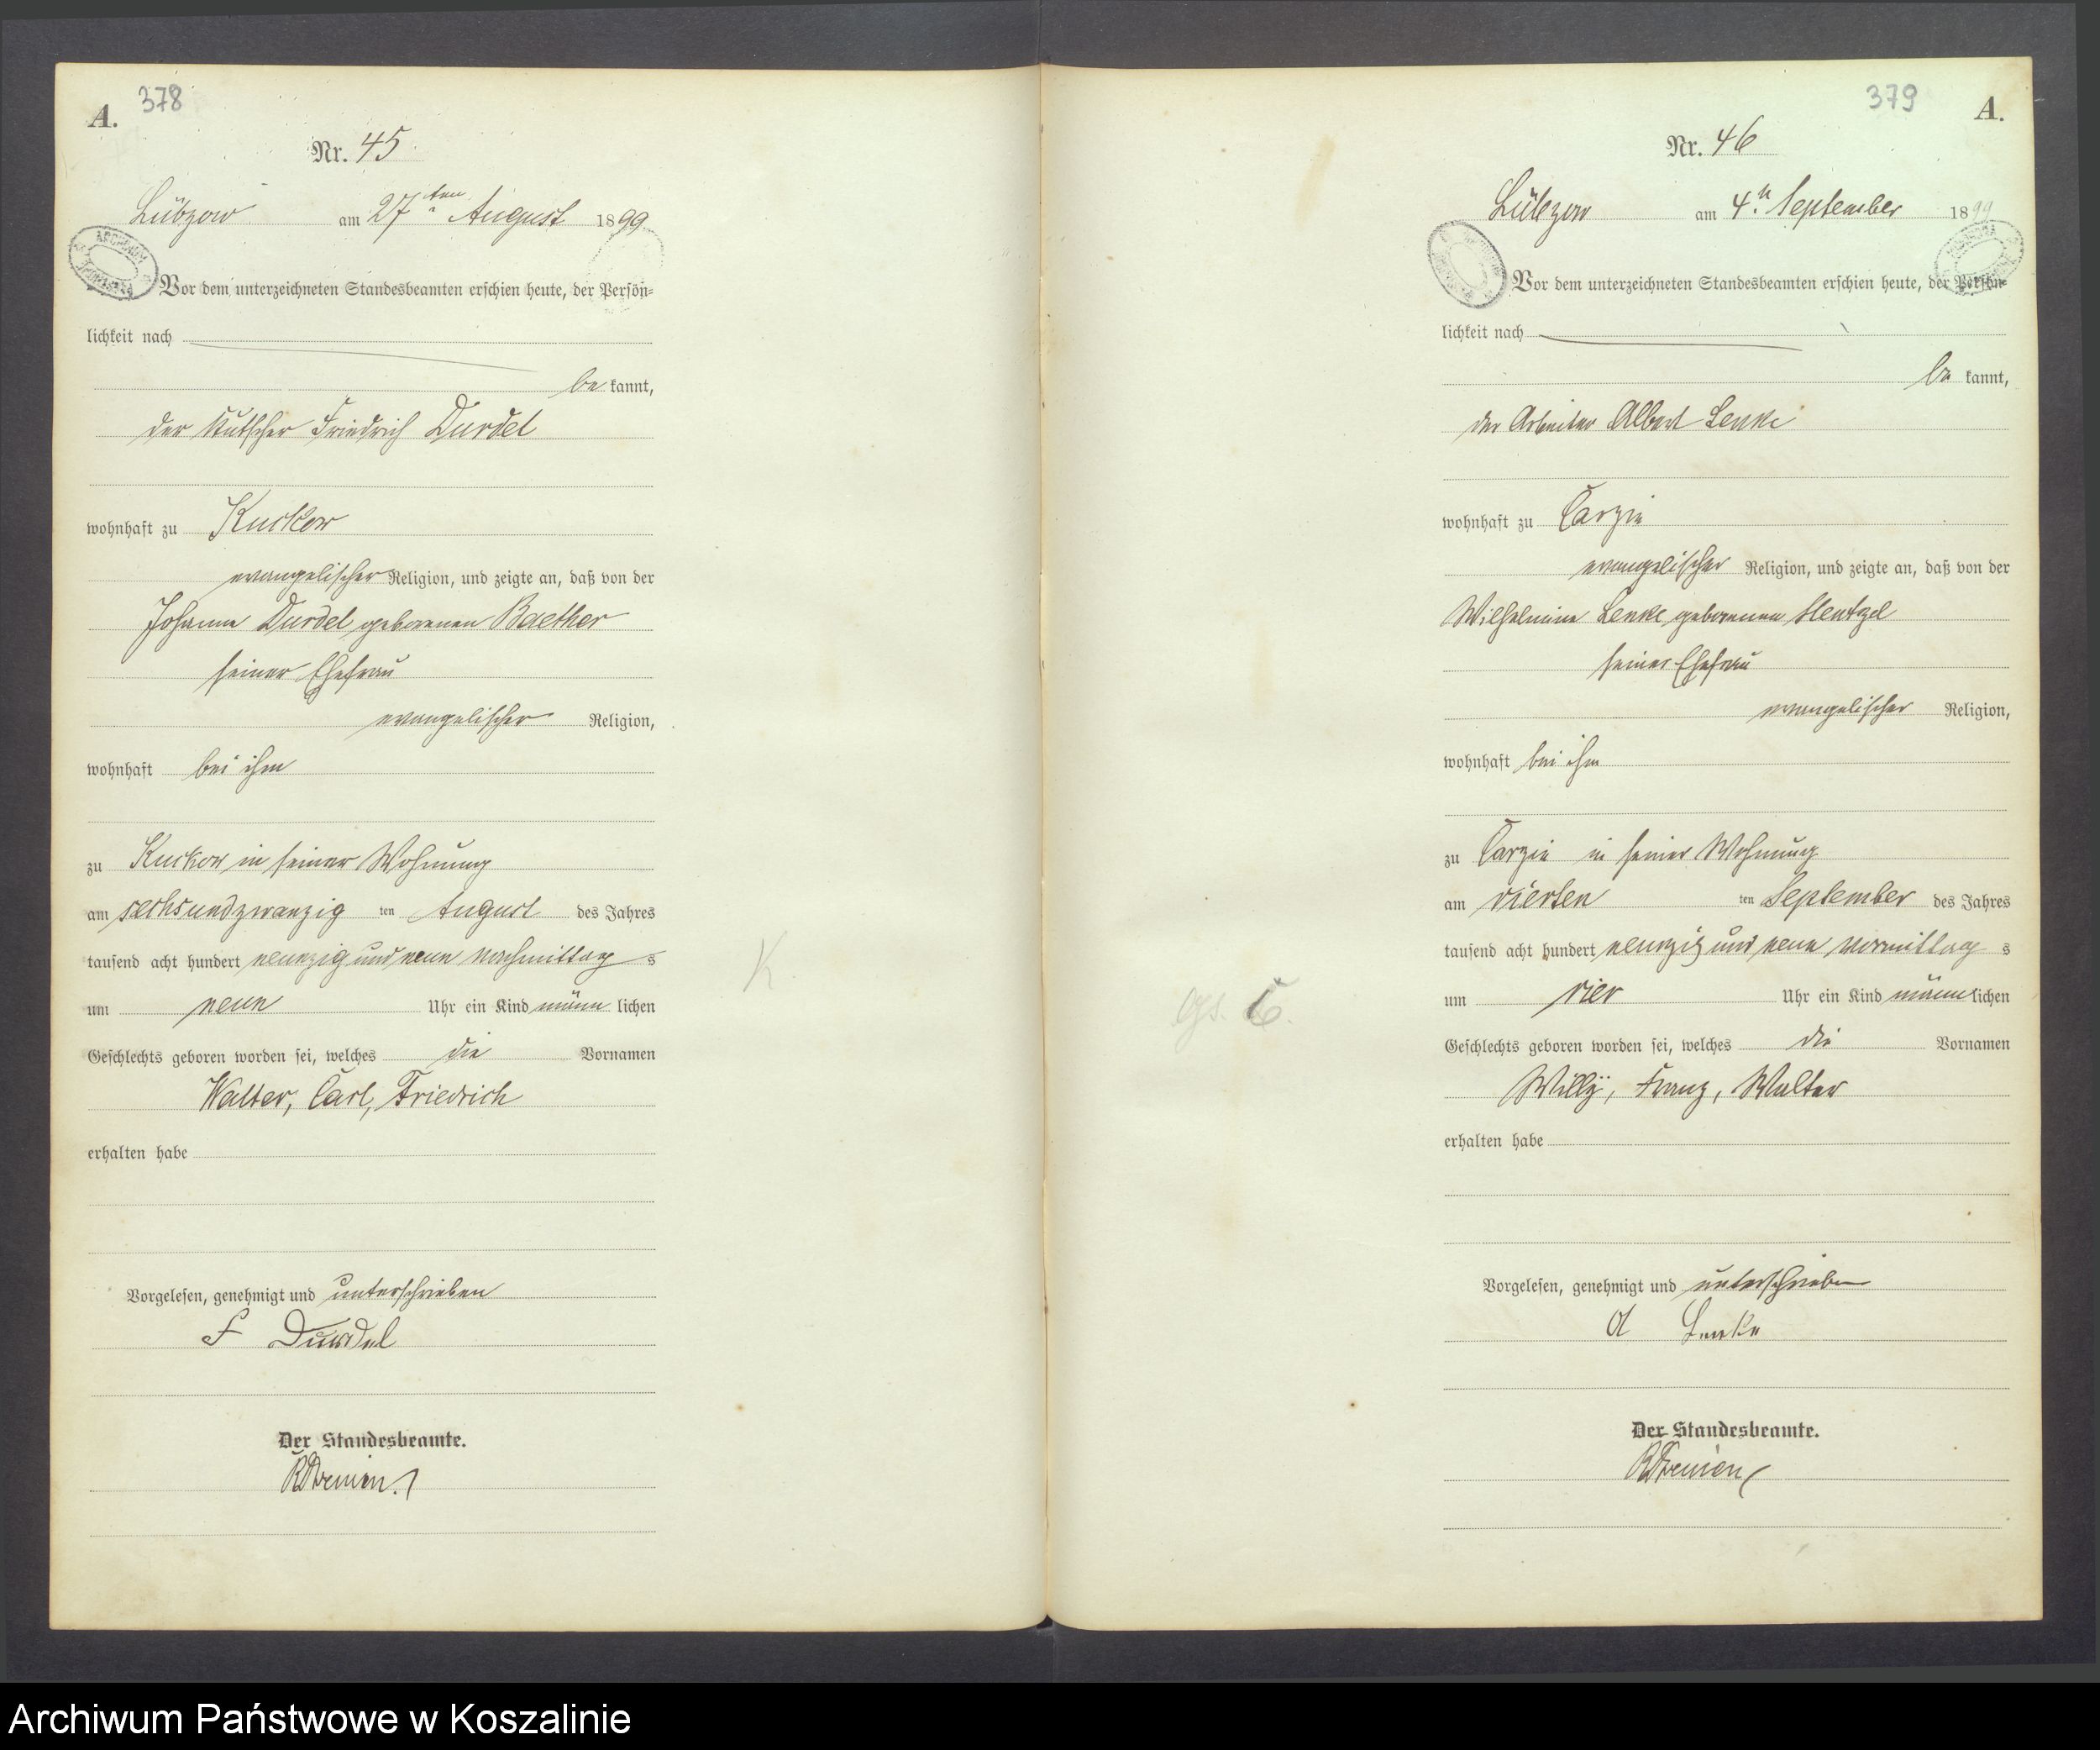 A. 378
Nr. 45
Lübzow am 27ten August 1899
Vor dem unterzeichneten Standesbeamten erschien heute, der Persön=
lichkeit nach
be kannt,
der Kutscher Friedrich Durdel
wohnhaft zu Kuckow
evangelischer Religion, und zeigte an, daß von der
Johanna Durdel geborenen Baether
seiner Ehefrau
evangelischer Religion,
wohnhaft bei ihm
zu Kuckow in seiner Wohnung
am sechsundzwanzig ten August des Jahres
tausend acht hundert neunzig und neun Nachmittag s
um neun Uhr ein Kind männ lichen
Geschlechts geboren worden sei, welches die Vornamen
Walter, Carl, Friedrich
erhalten habe
Vorgelesen, genehmigt und unterschrieben
F Durdel
Der Standesbeamte.
K
379 A.
Nr. 46
Lübzow am 4ten September 1899
Vor dem unterzeichneten Standesbeamten erschien heute, der Persön=
lichkeit nach
be kannt,
der Arbeiter Albert Lenke
wohnhaft zu Carzin
evangelischer Religion, und zeigte an, daß von der
Wilhelmine Lenke geborenen Hentzel
seiner Ehefrau
evangelischer Religion,
wohnhaft bei ihm
zu Carzin in seiner Wohnung
am vierten ten September des Jahres
tausend acht hundert neunzig und neun Vormittag s
um vier Uhr ein Kind männ lichen
Geschlechts geboren worden sei, welches die Vornamen
Willy, Franz, Walter
erhalten habe
Vorgelesen, genehmigt und unterschrieben
A Lenke
Der Standesbeamte.
Archiwum Państwowe w Koszalinie